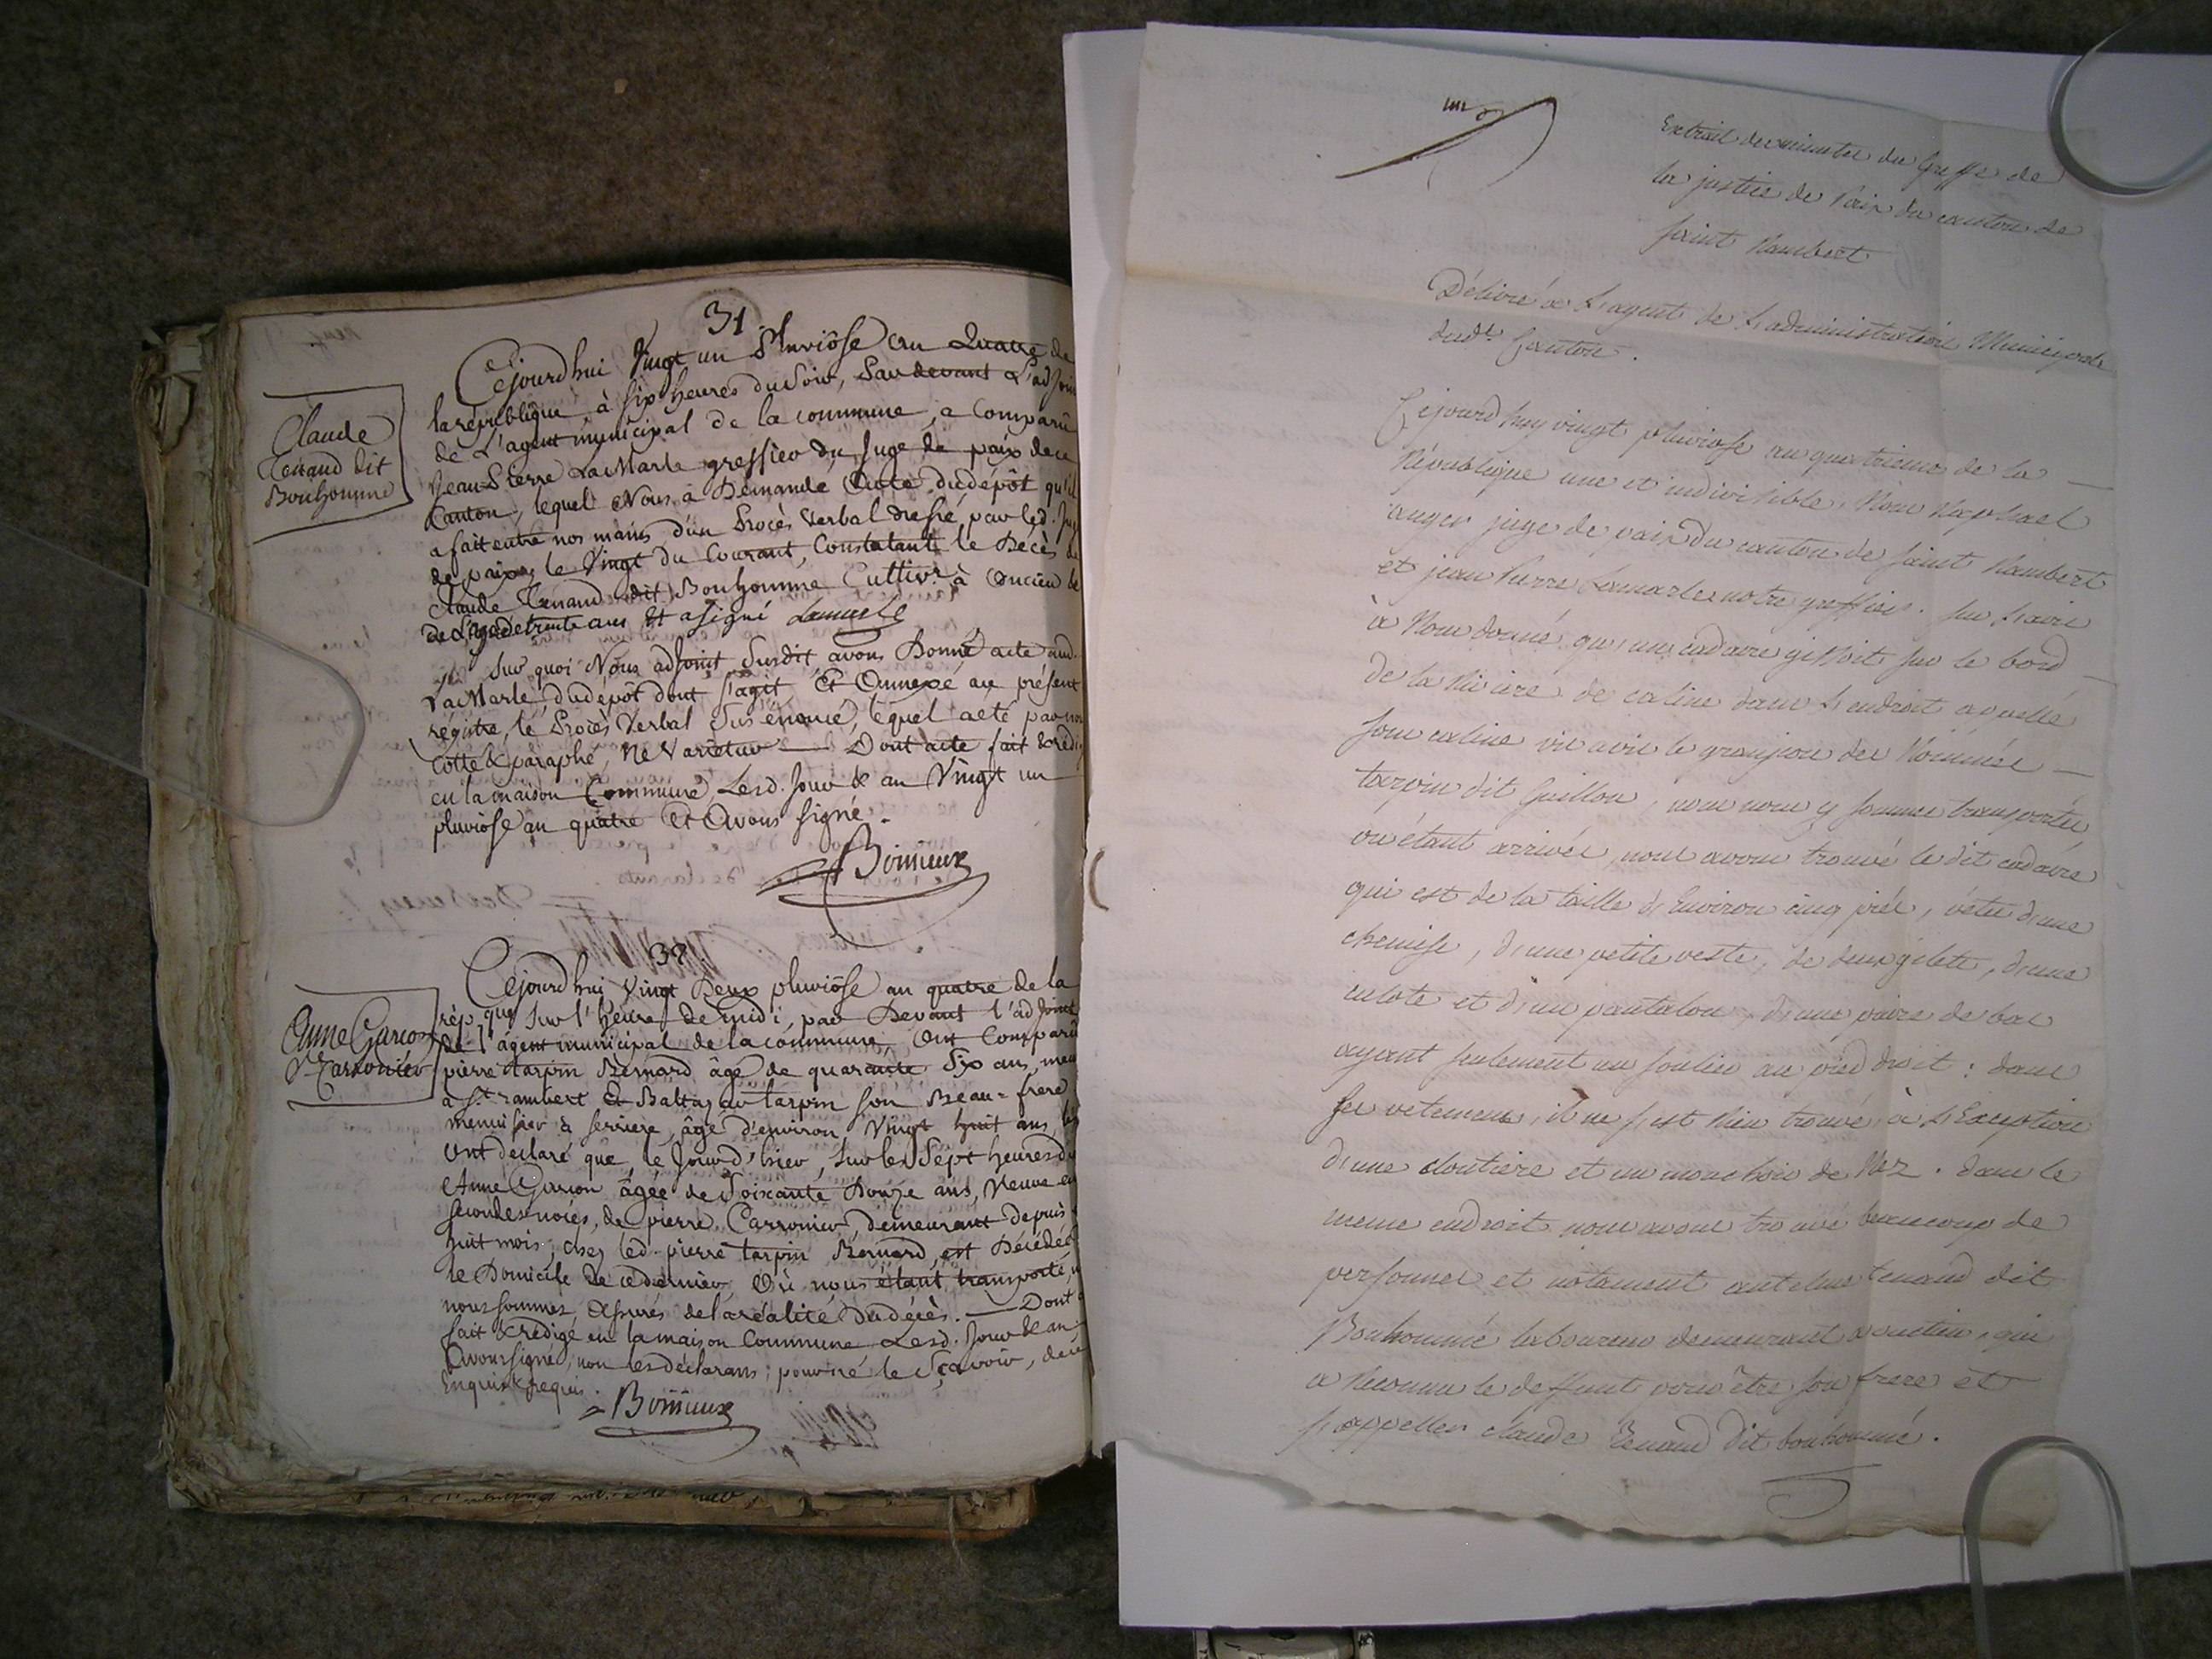 31
Claude
Tenand dit
Bonhomme
Cejourd'hui Vingt un Pluviôse an Quatre de
la république, à six heures du soir, Par devant L'adjoint
de L'agent municipal de la commune, a comparu
Jean Pierre LaMarle greffier du Juge de paix de ce
Canton, lequel Nous a Demandé Acte du dépôt qu'il
a fait entre nos mains d'un Procès Verbal dressé par led. Juge
de paix, le Vingt du Courant, Constatant le Décès de
Claude Tenand dit Bonhomme Cultivr. à
de L'age de trente ans Et a signé Lamarle
Sur quoi Nous adjoint Susdit, avons Donné acte aud.
LaMarle, du dépôt dont s'agit, Et Annexé au présent
régistre, le Procès Verbal sus énoncé, lequel a eté par nous
Cotté & paraphé, Ne Varietur — Dont acte fait & rédigé
en la maison Commune, Lesd. Jour & an Vingt un
pluviôse an quatre Et Avons signé.
Bonnieux
38
Anne Garcon
Ve Carronier
Cejourd'hui Vingt Deux pluviôse an quatre de la
rép que sur l'heure de midi, par Devant l'adjoint
de l'agent municipal de la commune, Ont Comparu
pierre tarpin Bernard âgé de quarante Six ans,
à St. rambert Et Baltazar tarpin son Beau=frere
menuisier à serriere, âgé d'environ Vingt huit ans, les
Ont declaré que le Jourd'hier, sur les Sept heures du
Anne Garcon âgée de Soixante Douze ans, Veuve en
secondes noces, de pierre Carronier, demeurant depuis
huit mois, chez led. pierre tarpin Bernard, est Décédée
le Domicile de ce dernier, Où nous étant transporté,
nous sommes assurés de la réalité du décès. — Dont
fait & rédigé en la maison Commune Lesd. Jour & an
Avons signé, non les déclarans; pour ne le Sçavoir, de ce
Enquis & requis.
Bonnieux
Extrait des minutes du Greffe de
la justice de Paix du canton de
saint Rambert
Délivré à L'agent de L'administration Municipale
dudt. Canton.
Cejourd'huy vingt pluviose an quatrieme de la —
République une et indivisible, Nous Raphael
auger juge de paix du canton de saint Rambert
et jean Pierre Lamarle notre greffier. sur L'avis
à Nous donné qu'un cadavre gissoit sur le bord —
de la Riviere de caline dans L'endroit appellé
sous caline vis avis le grangeon des Nommés —
tarpin dit Guillon, nous nous y sommes transportés
où étant arrivés, nous avons trouvé le dit cadavre
qui est de la taille d'Environ cinq piés, vétu d'une
chemise, d'une petite veste, de deux gilets, d'une
culote et d'un pantalon, d'une paire de bas
ayant seulement un soulier au pied droit: dans
ses vetemens, il ne s'est Rien trouvé à L'Exception
d'une cloutiere et un mouchoir de Nez. dans le
meme endroit nous avons trouvé beaucoup de
personnes et notament antelme tenand dit
Bonhomme laboureur demeurant a, qui
a Reconnu le deffunt pour être son frere et
s'appeller claude Tenand dit bonhomme.